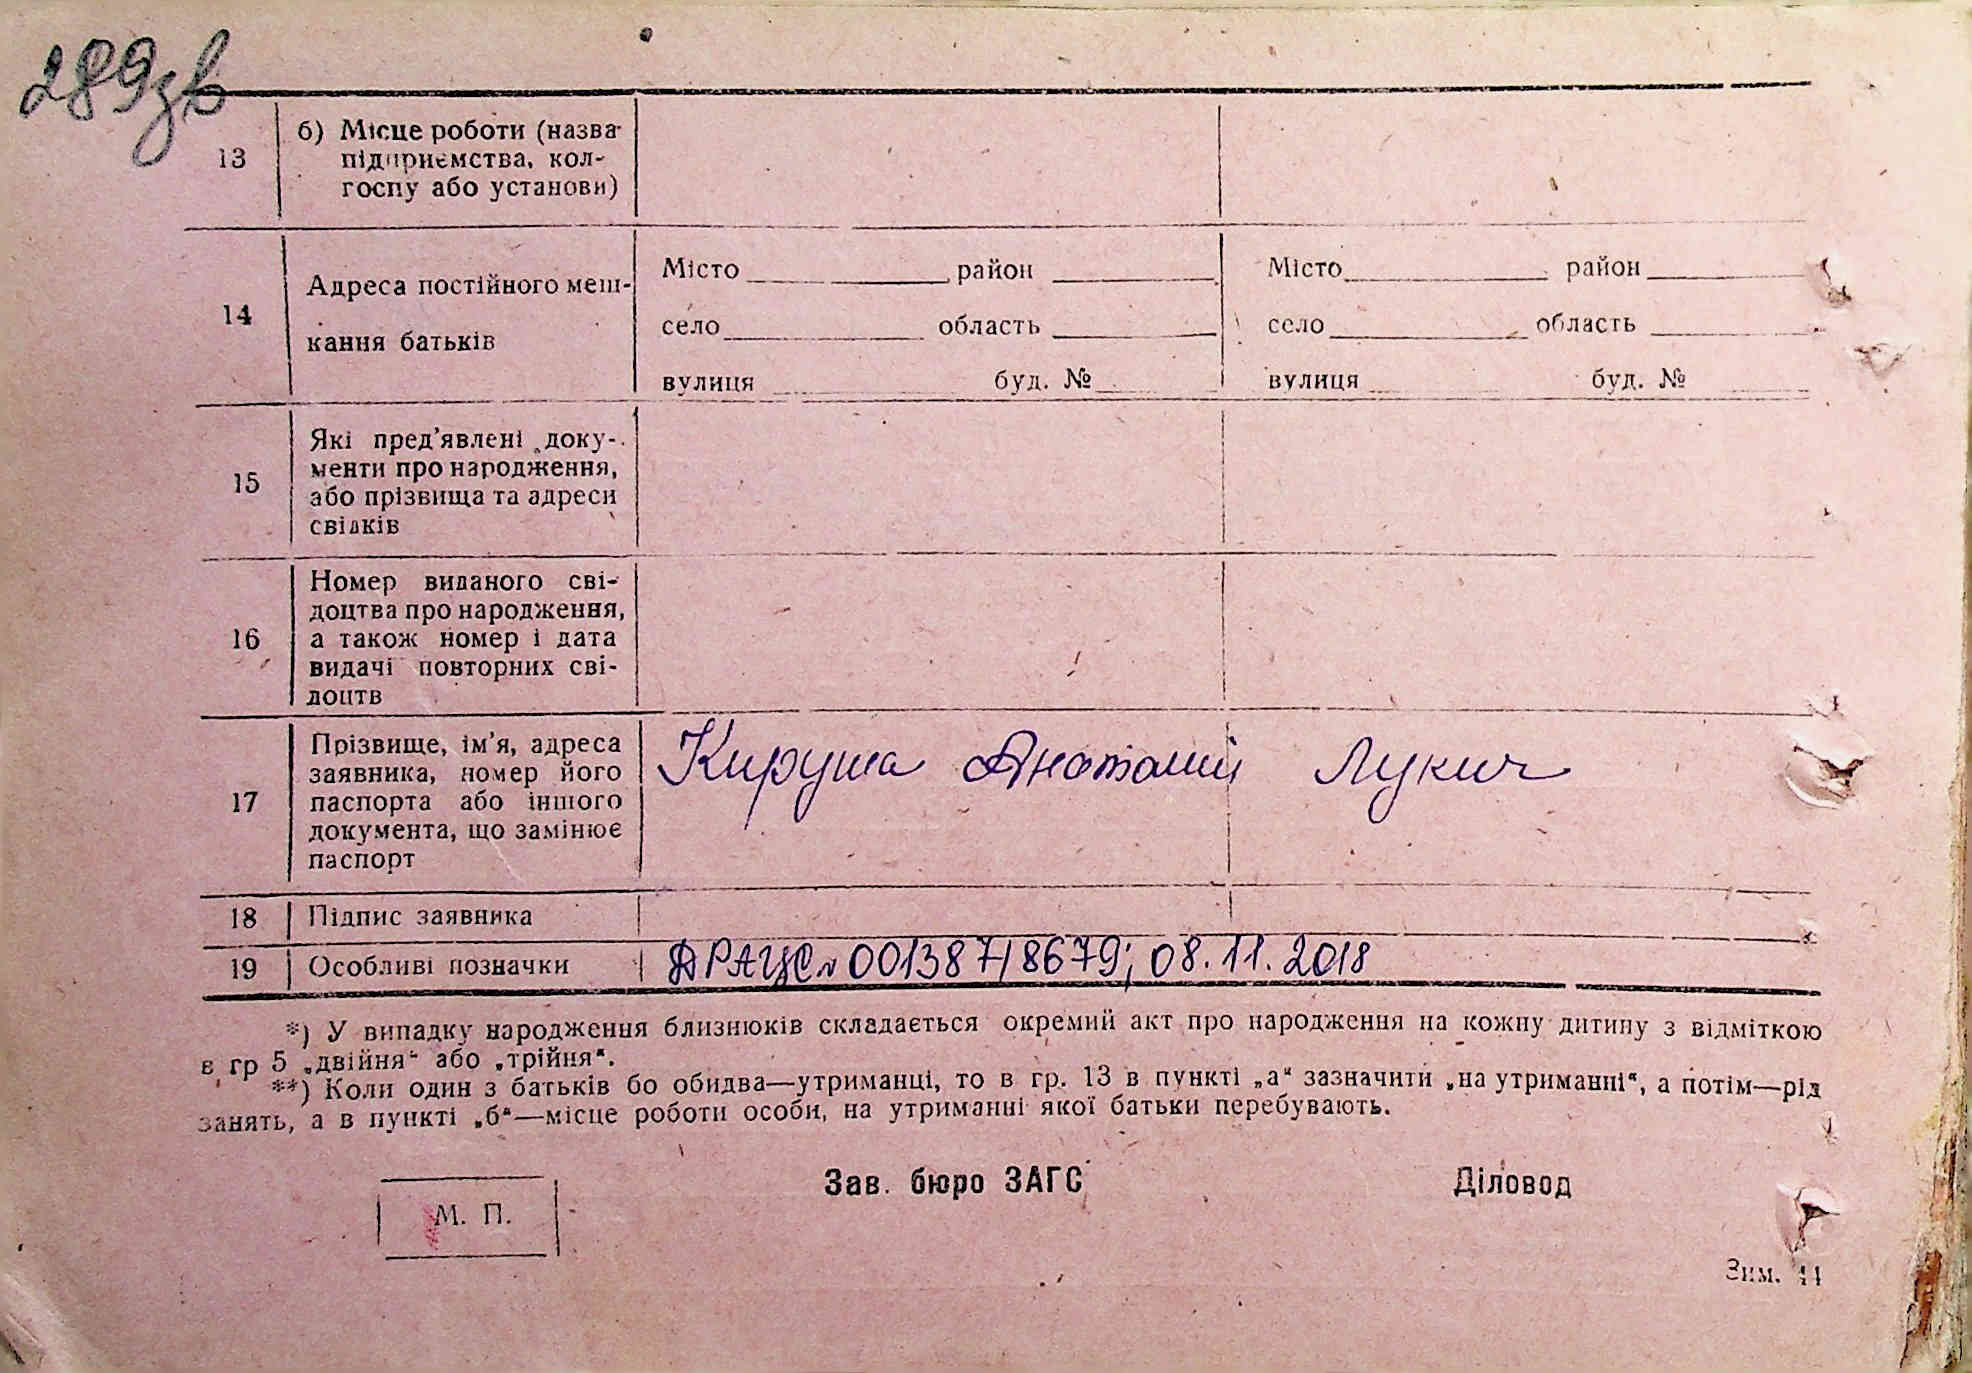 289зв
13
б) Місце роботи (назва
підприємства, кол-
госпу або установи)
14
Адреса постійного меш-
кання батьків
Місто район
село область
вулиця буд. №
Місто район
село область
вулиця буд. №
15
Які пред’явлені доку-
менти про народження,
або прізвища та адреси
свідків
16
Номер виданого сві-
доцтва про народження,
а також номер і дата
видачі повторних сві-
доцтв
17
Прізвище, ім’я, адреса
заявника, номер його
паспорта або іншого
документа, що замінює
паспорт
Кируша Анатолий Лукич
18 Підпис заявника
19 Особливі позначки
ДРАЦС№ 00138718679; 08.11.2018
*) У випадку народження близнюків складається окремий акт про народження на кожну дитину з відміткою
в гр 5 „двійня“ або „трійня“.
**) Коли один з батьків бо обидва—утриманці, то в гр. 13 в пункті „а“ зазначити „на утриманні“, а потім—рід
занять, а в пункті „б“—місце роботи особи, на утриманні якої батьки перебувають.
Зав. бюро ЗАГС Діловод
М. П.
Зим. 44